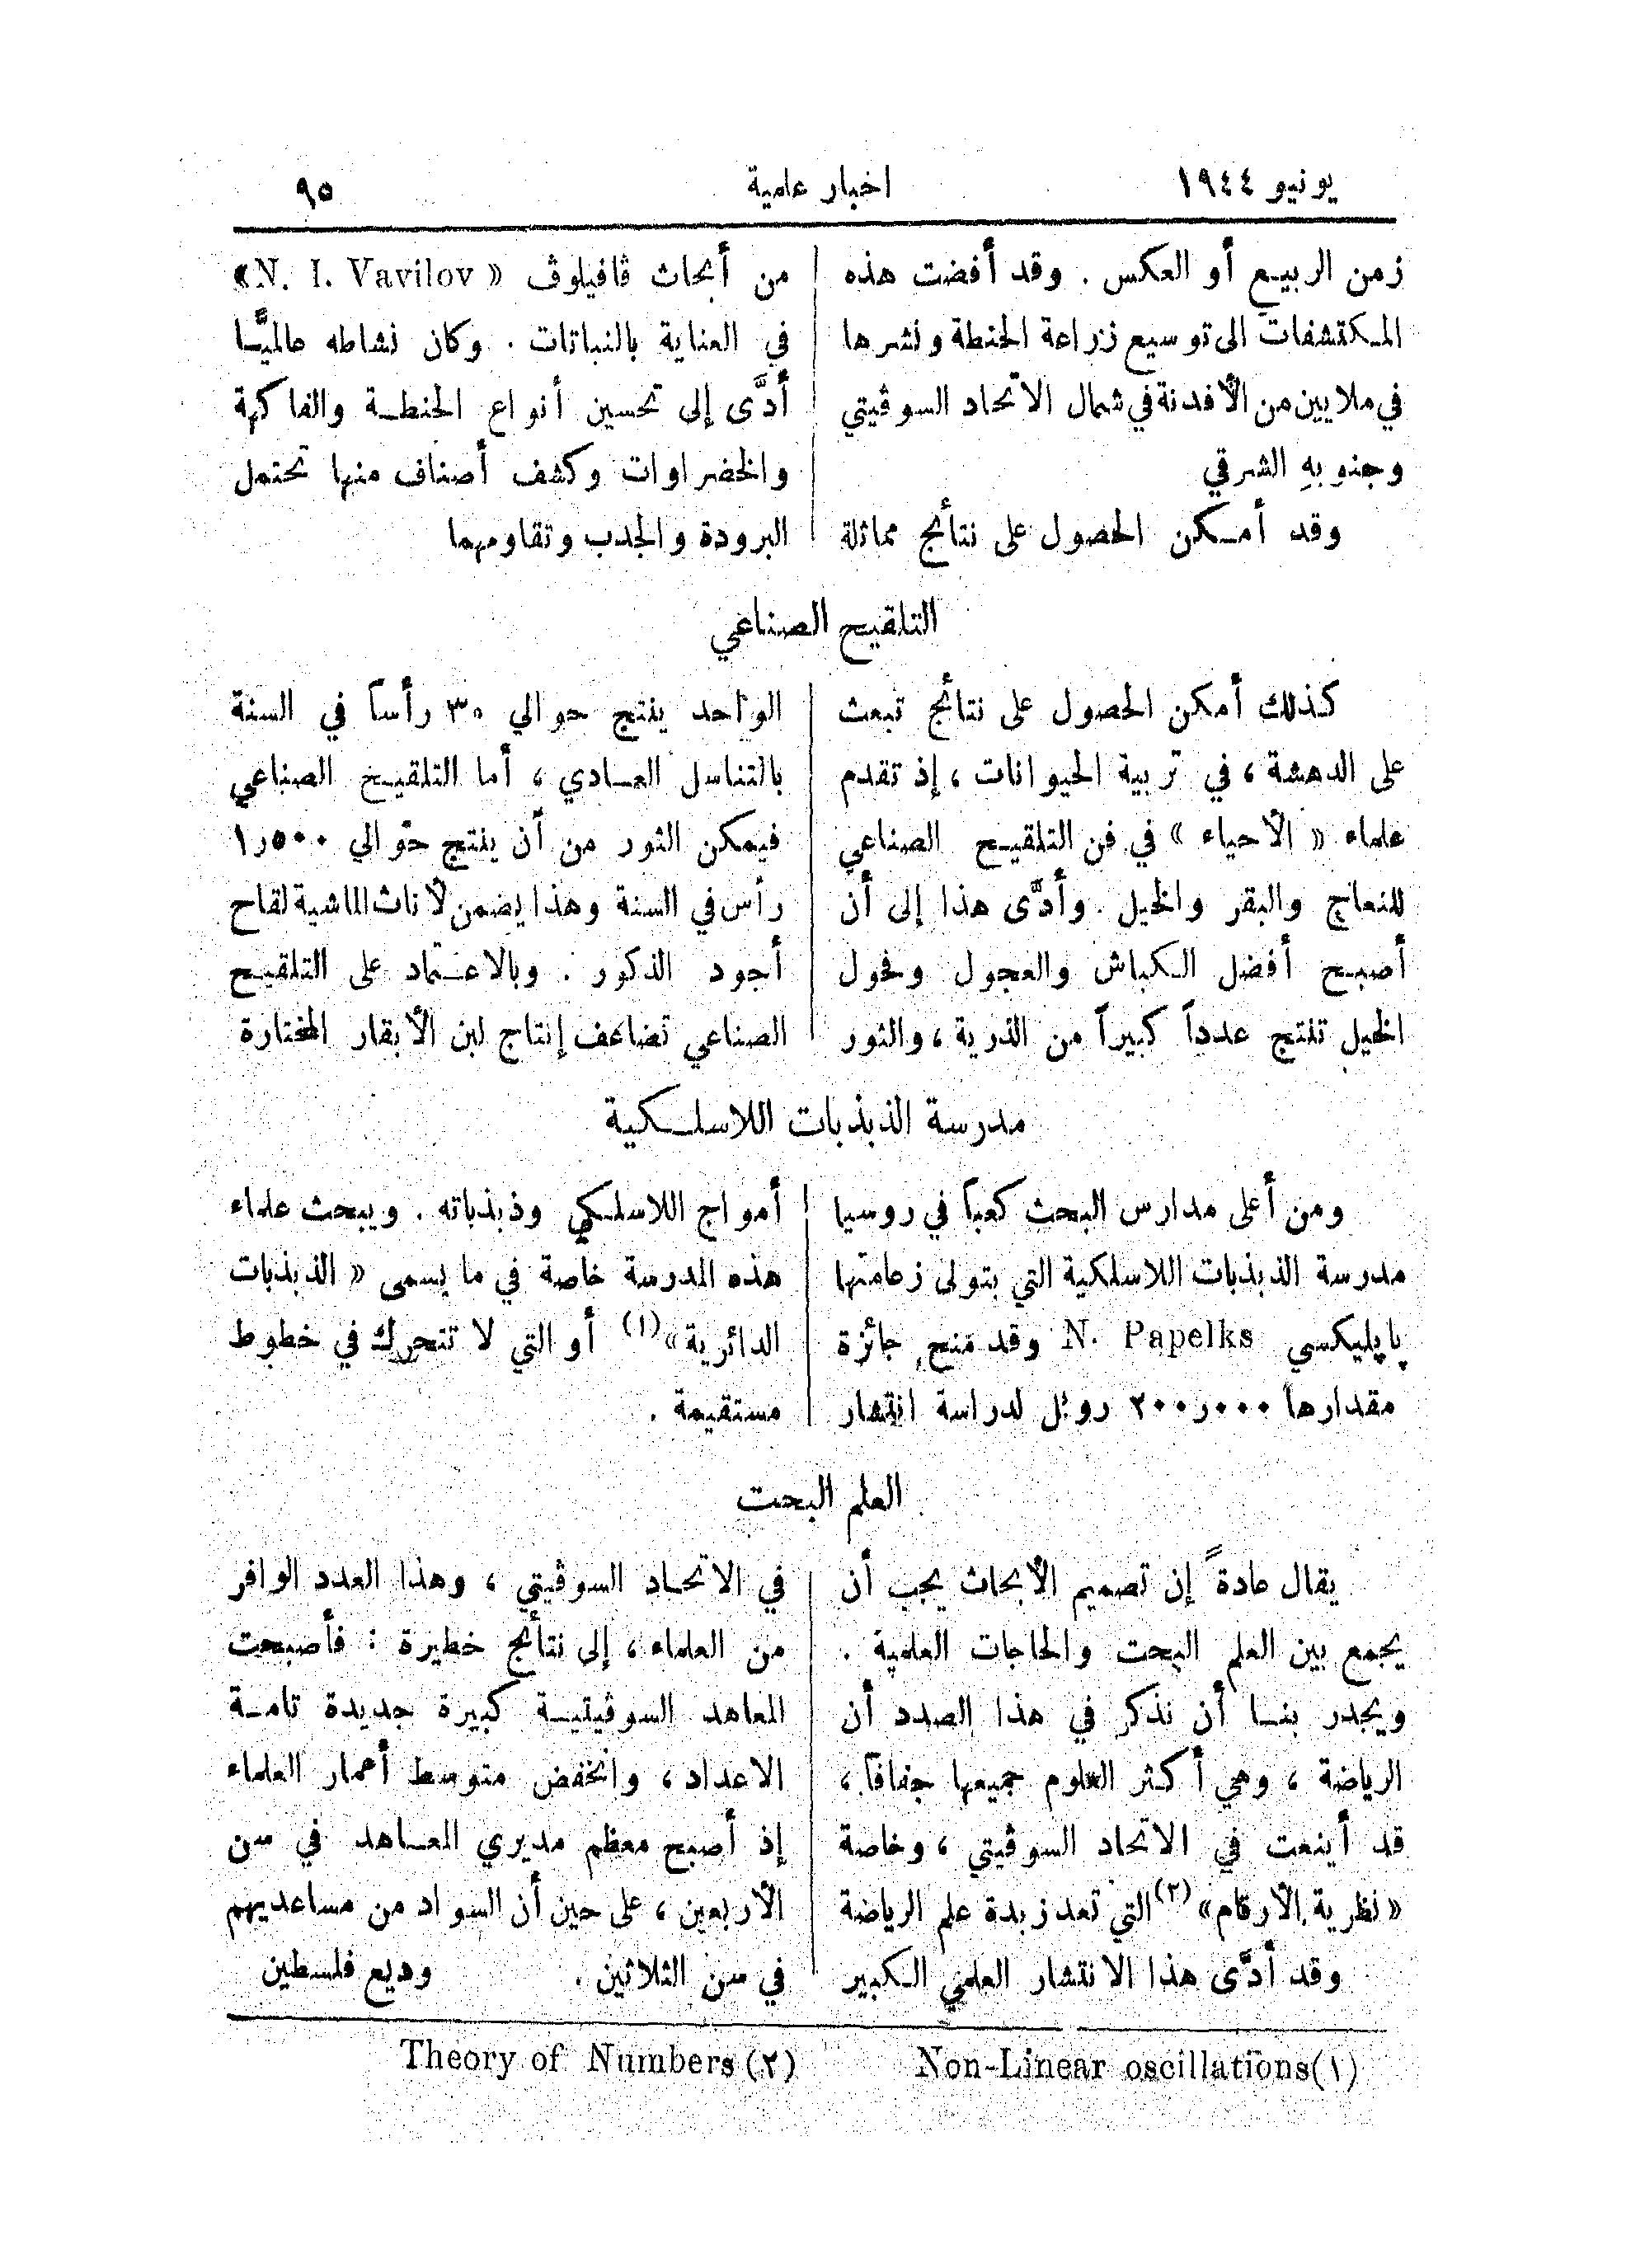 يونيو ١٩٤٤
اخبار علمية
٩٥
زمن الربيع أو العكس . وقد أفضت هذه
المكتشفات الى توسيع زراعة الحنطة ونشرها
في ملايين من الأفدنة في شمال الاتحاد السوڤيتي
وجنوبهِ الشرقي
وقد أمكن الحصول على نتائج مماثلة
من أبحاث ڤاڤيلوڤ « N. I. Vavilov »
في العناية بالنباتات . وكان نشاطه عالميًّا
أدَّى إلى تحسين أنواع الحنطة والفاكهة
والخضراوات وكشف أصناف منها تحتمل
البرودة والجدب وتقاومهما
التلقيح الصناعي
كذلك أمكن الحصول على نتائج تبعث
على الدهشة ، في تربية الحيوانات ، إذ تقدم
علماء « الأحياء » في فن التلقيح الصناعي
للنعاج والبقر والخيل . وأدَّى هذا إلى أن
أصبح أفضل الكباش والعجول وفحول
الخيل تنتج عدداً كبيراً من الذرية ، والثور
الواحد ينتج حوالي ٣٠ رأساً في السنة
بالتناسل العادي ، أما التلقيح الصناعي
فيمكن الثور من أن ينتج حوالي ١ر٥٠٠
رأس في السنة وهذا يضمن لأناث الماشية لقاح
أجود الذكور . وبالاعتماد على التلقيح
الصناعي تضاعف إنتاج لبن الأبقار المختارة
مدرسة الذبذبات اللاسلكية
ومن أعلى مدارس البحث كعباً في روسيا
مدرسة الذبذبات اللاسلكية التي يتولى زعامتها
پاپليكسي N. Papelks وقد مُنح جائزة
مقدارها ٢٠٠ر٠٠٠ روبل لدراسة انتشار
أمواج اللاسلكي وذبذباته . ويبحث علماء
هذه المدرسة خاصة في ما يسمى « الذبذبات
الدائرية »(١) أو التي لا تتحرك في خطوط
مستقيمة .
العلم البحت
يقال عادةً إن تصميم الأبحاث يجب أن
يجمع بين العلم البحت والحاجات العلمية .
ويجدر بنا أن نذكر في هذا الصدد أن
الرياضة ، وهي أكثر العلوم جميعها جفافاً ،
قد أينعت في الاتحاد السوڤيتي ، وخاصة
« نظرية الأرقام »(٢) التي تعد زبدة علم الرياضة
وقد أدَّى هذا الانتشار العلمي الكبير
في الاتحاد السوڤيتي ، وهذا العدد الوافر
من العلماء ، إلى نتائج خطيرة : فأصبحت
المعاهد السوڤيتية كبيرة جديدة تامة
الاعداد ، وانخفض متوسط أعمار العلماء
إذ أصبح معظم مديري المعاهد في سن
الأربعين ، على حين أن السواد من مساعديهم
في سن الثلاثين .
وديع فلسطين
(١) Non-Linear oscillations
(٢) Theory of Numbers